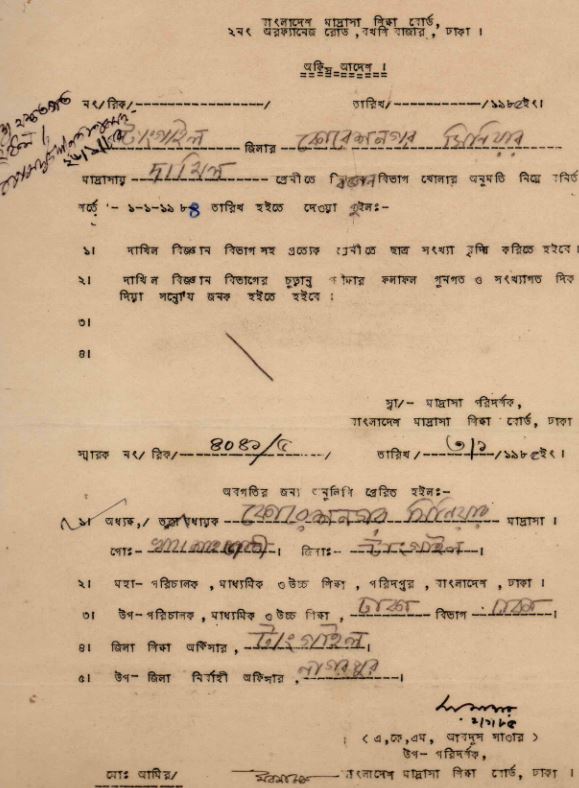 বাংলাদেশ মাদ্রাসা শিক্ষা বোর্ড,
২নং অরফ্যানেজ রোড, বখশি বাজার, ঢাকা।
অফিস আদেশ।
নং/ রিক/---------------/ তারিখ/----------/১৯৮৫ইং।
টাংগাইল জিলার সিনিয়র
মাদ্রাসায় দাখিল শ্রেনীতে বিজ্ঞান বিভাগ খোলার অনুমতি নিম্নে বর্নিত
শর্তে :- ১-১-১৯৮৪ তারিখ হইতে দেওয়া হইল:-
১। দাখিল বিজ্ঞান বিভাগ সহ প্রত্যেক শ্রেনীতে ছাত্র সংখ্যা বৃদ্ধি করিতে হইবে।
২। দাখিল বিজ্ঞান বিভাগের চুড়ান্ত পরীক্ষার ফলাফল গুনগত ও সংখ্যাগত দিক
দিয়া সন্তোষ জনক হইতে হইবে।
৩।
৪।
স্বা/- মাদ্রাসা পরিদর্শক,
বাংলাদেশ মাদ্রাসা শিক্ষা বোর্ড, ঢাকা
স্মারক নং/ রিক/ ৪০৪১/৫ তারিখ/ ৩/১ /১৯৮৫ইং।
অবগতির জন্য অনুলিপি প্রেরিত হইল:-
১। অধ্যক্ষ,/ তত্ত্বাবধায়ক সিনিয়ার মাদ্রাসা।
পোঃ- জিলাঃ- টাংগাইল।
২। মহা-পরিচালক, মাধ্যমিক ও উচ্চ শিক্ষা, পরিদপ্তর, বাংলাদেশ, ঢাকা।
৩। উপ-পরিচালক, মাধ্যমিক ও উচ্চ শিক্ষা, ঢাকা বিভাগ ঢাকা।
৪। জিলা শিক্ষা অফিসার, টাংগাইল।
৫। উপ-জিলা নির্বাহী অফিসার, নাগরপুর।
২/১/৮৫
( এ,কে,এম, আবদুস সাত্তার )
উপ-পরিদর্শক,
মোঃ আমির/ বাংলাদেশ মাদ্রাসা শিক্ষা বোর্ড, ঢাকা।